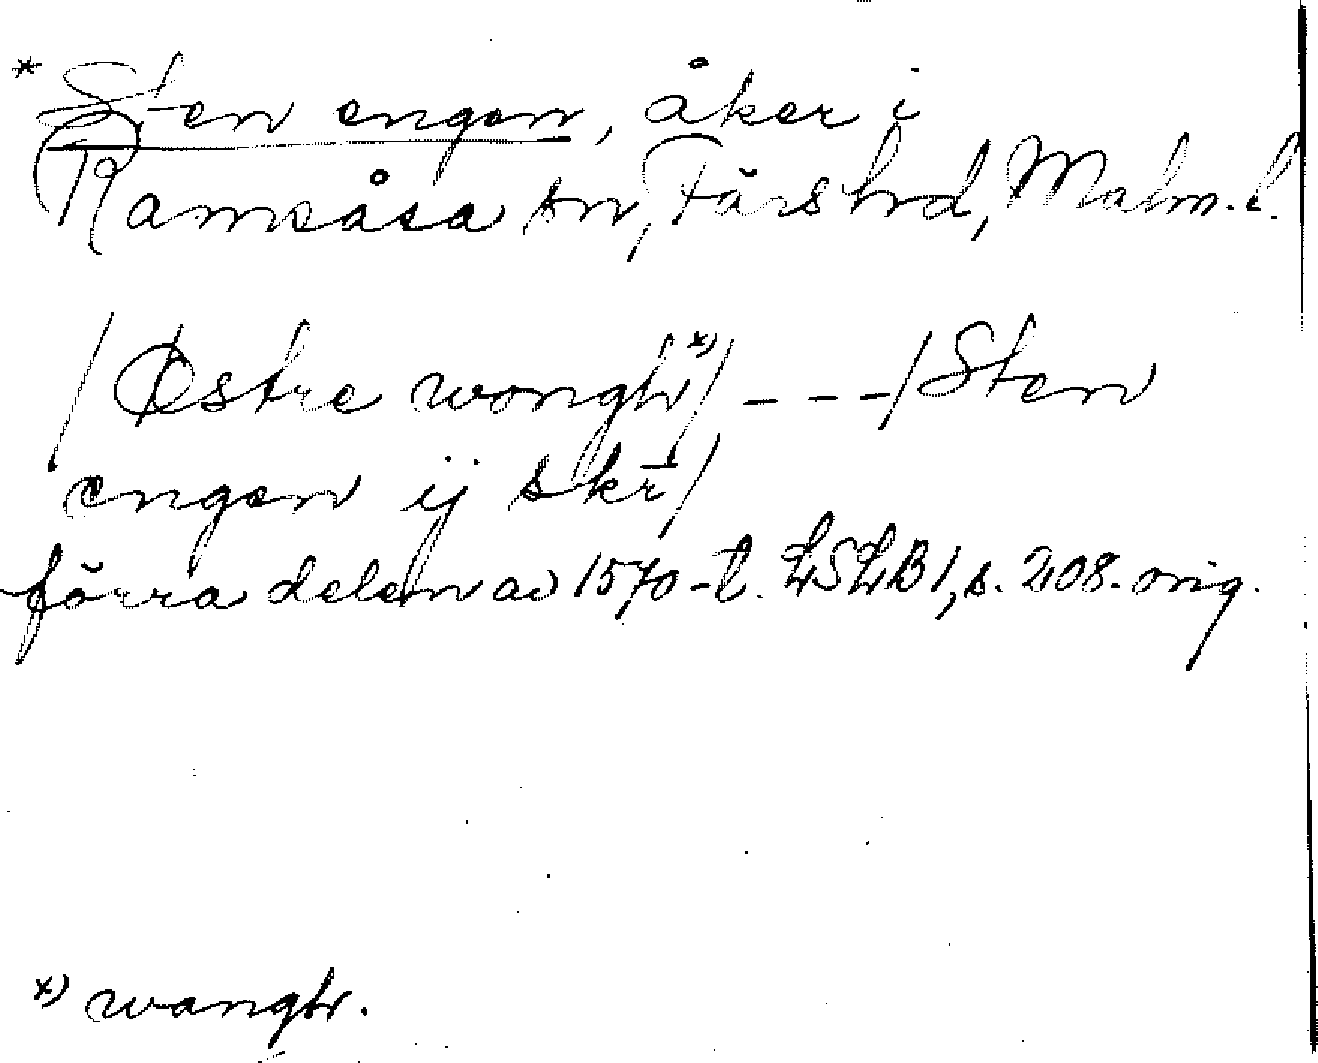 * Sten engen, åker i
Ramsåsa sn, Färs hrd, Malm. l.
/Østre wongh*)/ --- /Sten
engen ij skr/
förra delen av 1570-t. LSLB I, s. 208. orig.
*) wangh.